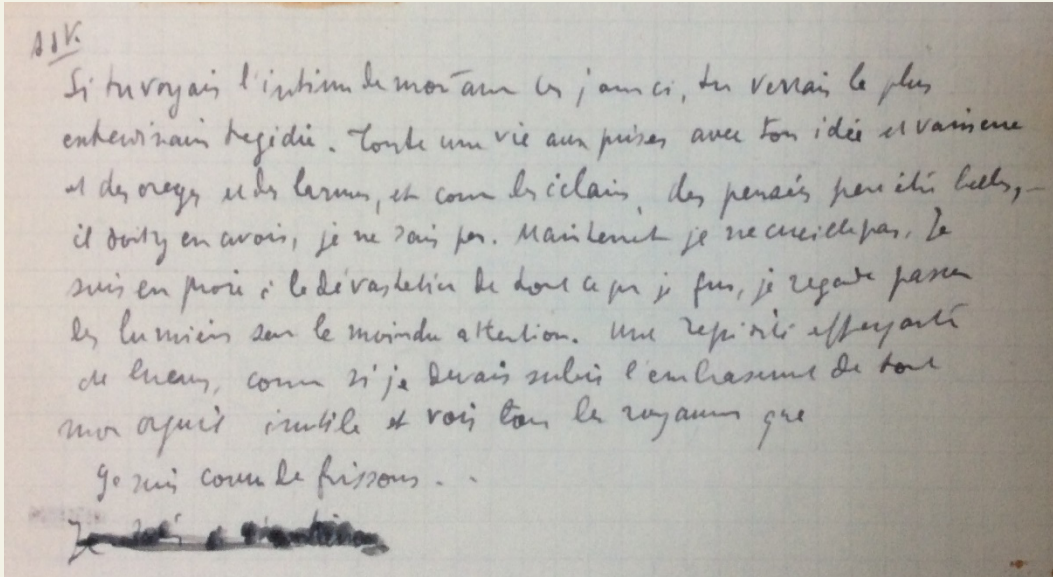 Si tu voyais l'intime de mon âme ces jours ci, tu verrais la plus
tragédie. Toute une vie aux prises avec ton idée et vaincue
et des orages et des larmes, et comme des éclairs, des pensées peut être belles,
il doit y en avoir, je ne sais pas. Maintenant je ne cueille pas. Je
suis en proie à la dévastation de tout ce que je fus, je regarde passer
les lumières sans la moindre attention. Une rapidité effrayante
de lueurs, comme si je devais subir l'embrasement de tout
mon orgueil inutile et voir tous les royaumes que
je suis couru de frissons...
Je